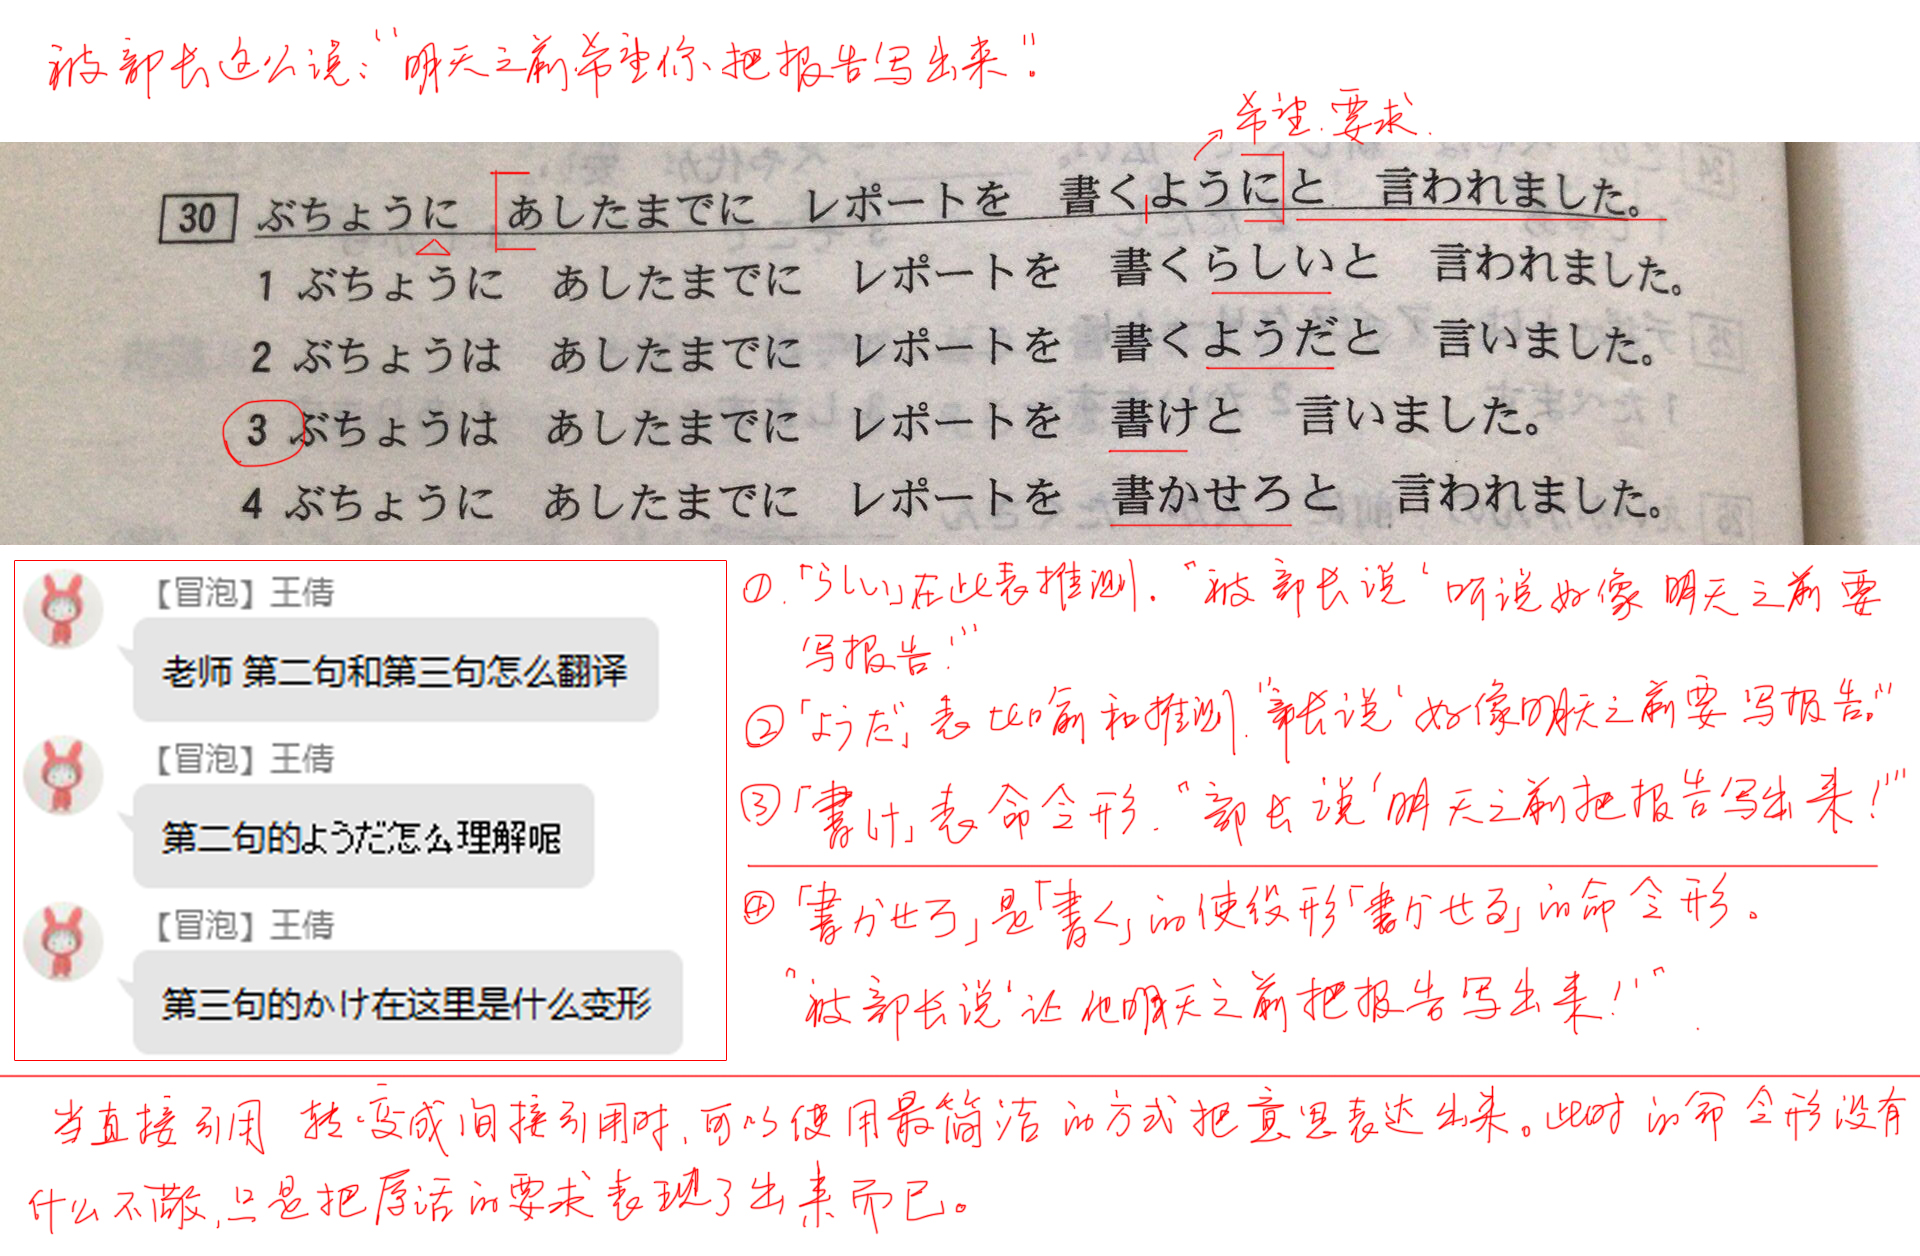 被部长这么说：“明天之前希望你把报告写出来”。
希望.要求.
30 ぶちょうに あしたまでに レポートを 書くようにと 言われました。
1 ぶちょうに あしたまでに レポートを 書くらしいと 言われました。
2 ぶちょうは あしたまでに レポートを 書くようだと 言いました。
3 ぶちょうは あしたまでに レポートを 書けと 言いました。
4 ぶちょうに あしたまでに レポートを 書かせろと 言われました。
【冒泡】王倩
老师 第二句和第三句怎么翻译
【冒泡】王倩
第二句的ようだ怎么理解呢
【冒泡】王倩
第三句的かけ在这里是什么变形
①.「らしい」在此表推测. “被部长说‘听说好像明天之前要
写报告!’”
②「ようだ」表比喻和推测.“部长说‘好像明天之前要写报告。’”
③「書け」表命令形. “部长说‘明天之前把报告写出来!’”
④「書かせろ」是「書く」的使役形「書かせる」的命令形。
“被部长说‘让他明天之前把报告写出来!’”.
当直接引用转变成间接引用时,可以使用最简洁的方式把意思表达出来。此时的命令形没有
什么不敬,只是把原话的要求表现了出来而已。